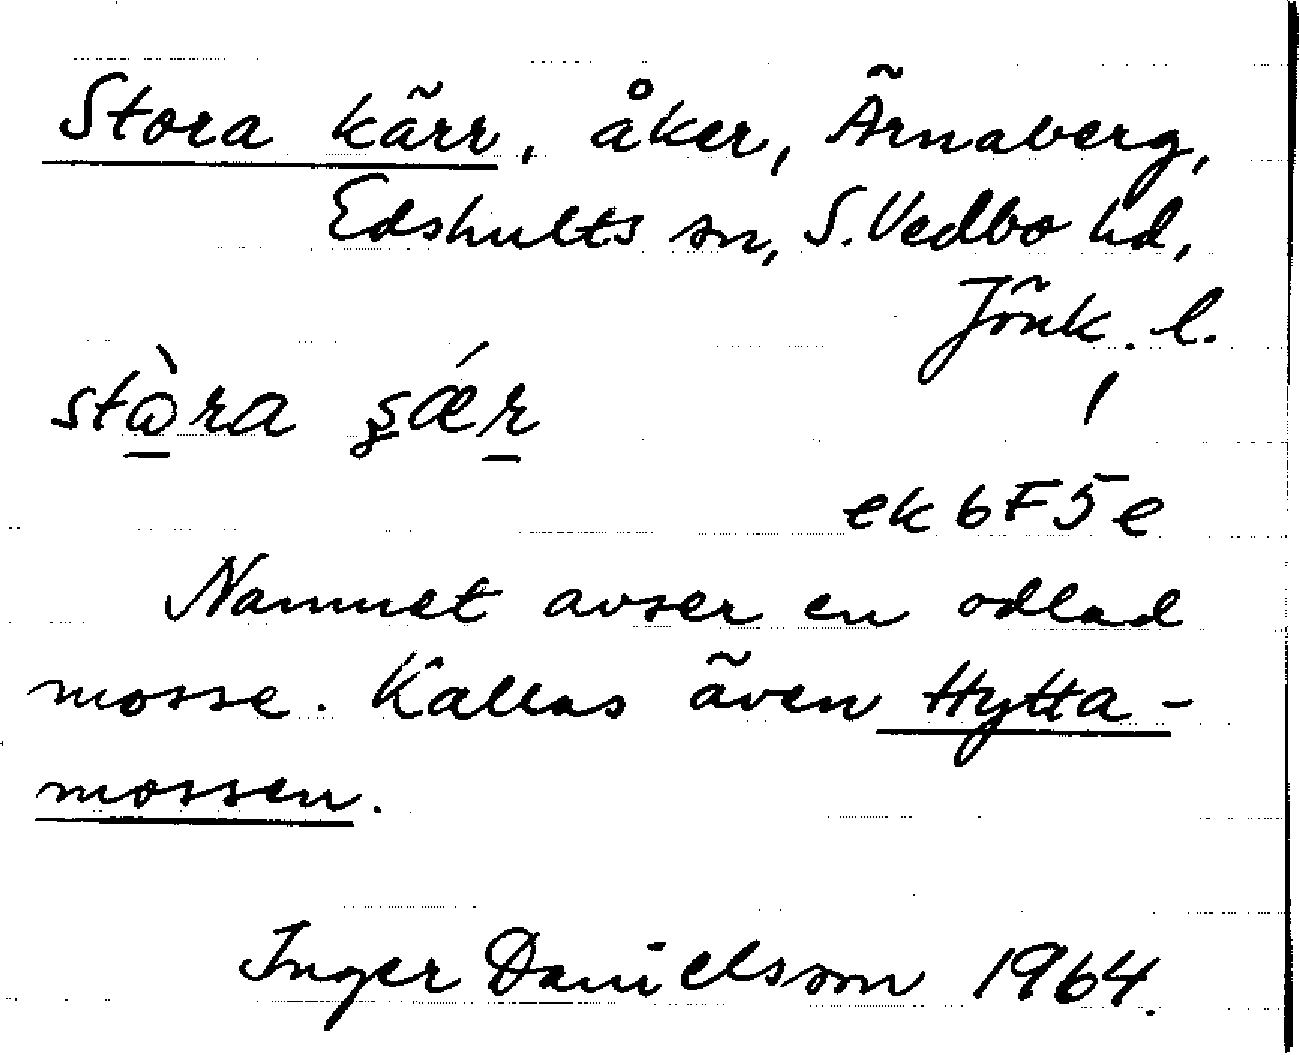 Stora kärr, åker, Ärnaberg,
Edshults sn, S. Vedbo hd,
Jönk. l.
stὼ̠ra ʂǽr̠
ek 6F5e
Namnet avser en odlad
mosse. Kallas även Hytta-
mossen.
Inger Danielsson 1964.